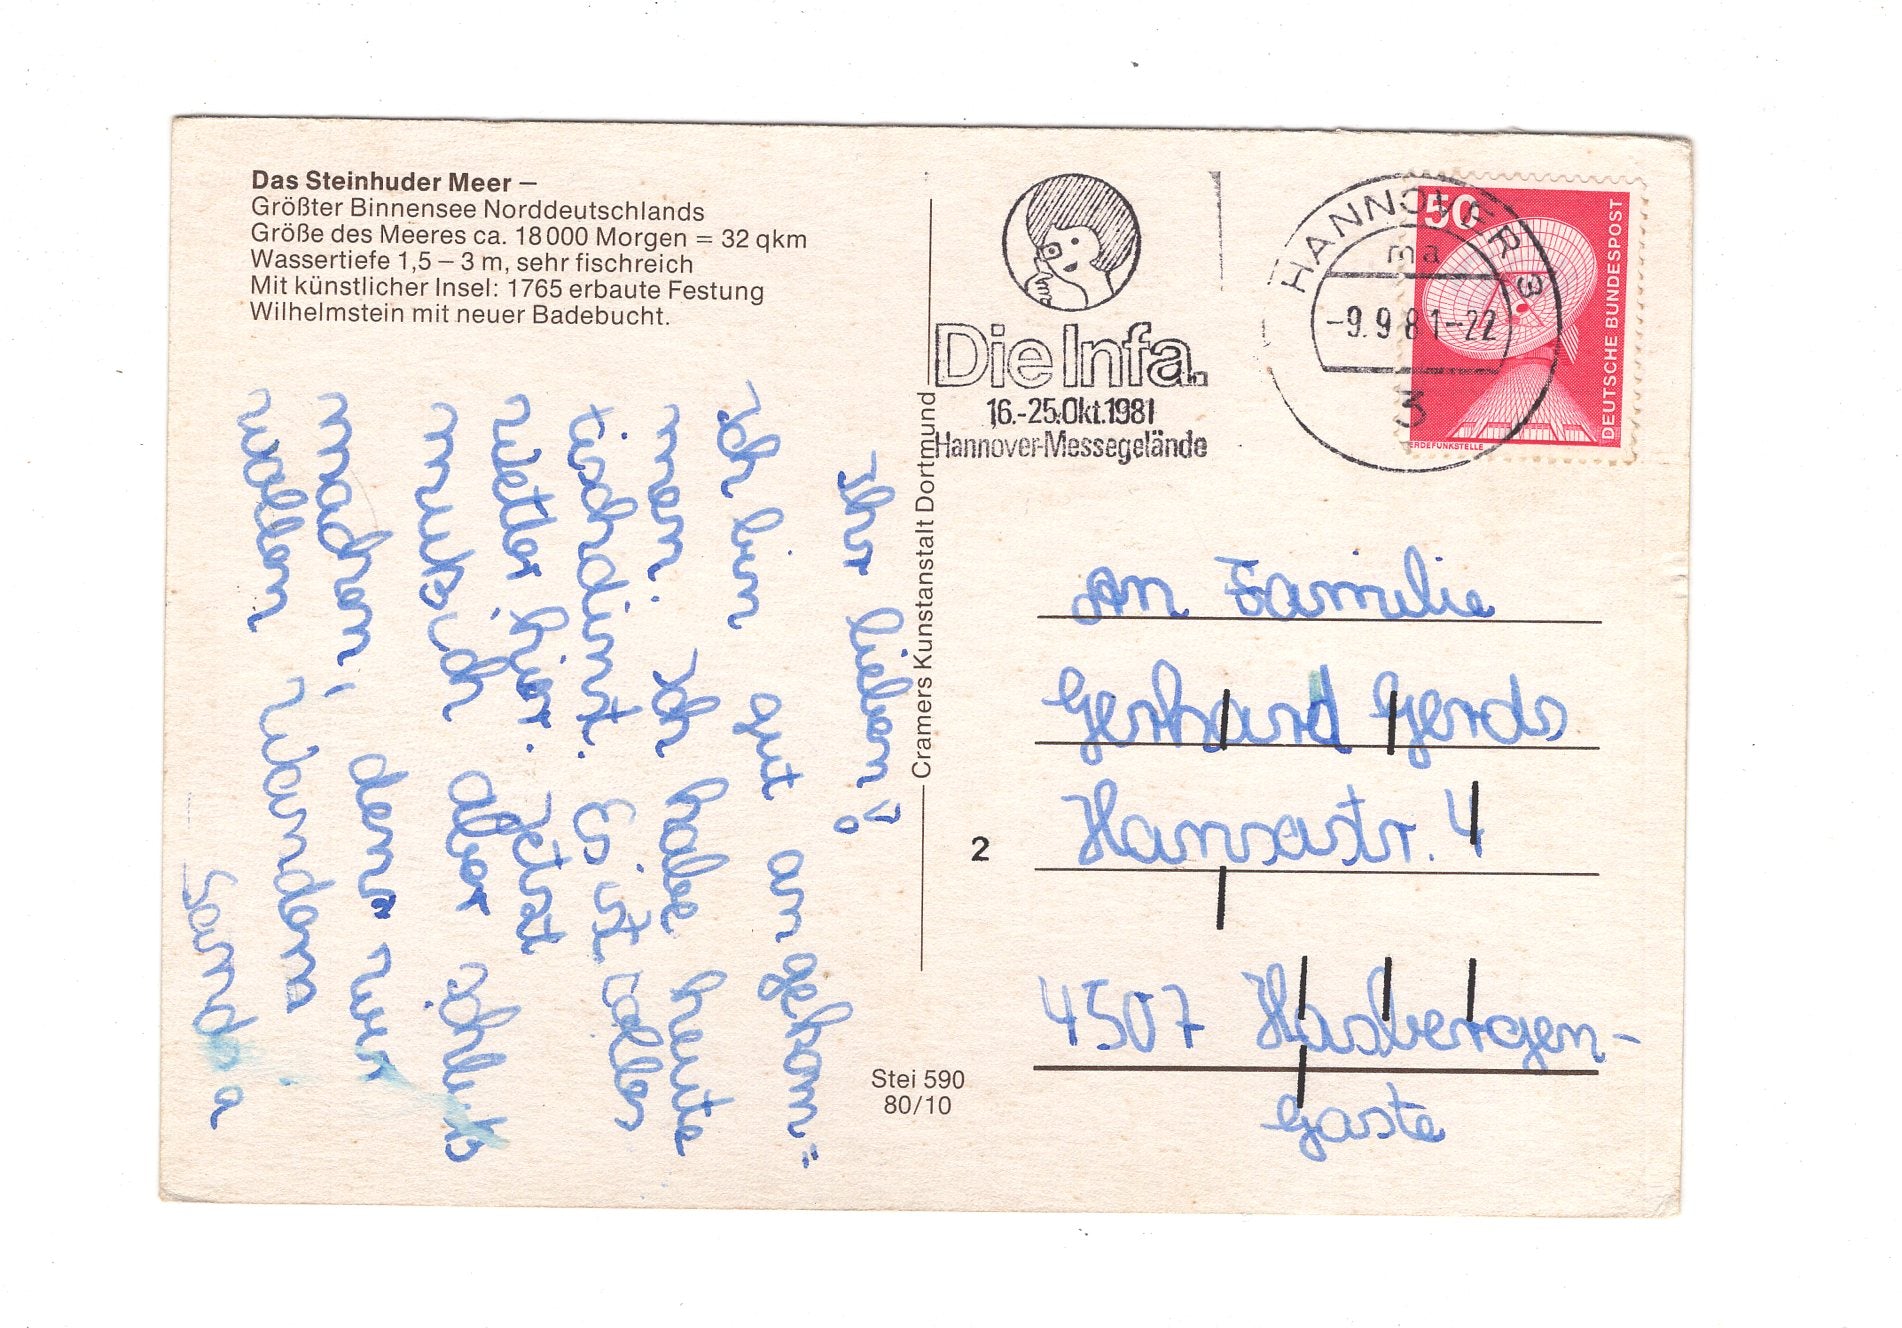 Das Steinhuder Meer –
Größter Binnensee Norddeutschlands
Größe des Meeres ca. 18 000 Morgen = 32 qkm
Wassertiefe 1,5 – 3 m, sehr fischreich
Mit künstlicher Insel: 1765 erbaute Festung
Wilhelmstein mit neuer Badebucht.
Ihr lieben!
Ich bin gut angekom=
men. Ich habe heute
tischdinst. Es ist tolles
wetter hier. Jetzt
muß ich aber schluß
machen, denn wir
wollen wandern
Sandra
Cramers Kunstanstalt Dortmund
Stei 590
80/10
Die Infa.
16.-25.Okt.1981
Hannover-Messegelände
HANNOVER 3
ma
-9.9.81-22
3
50
DEUTSCHE BUNDESPOST
ERDEFUNKSTELLE
An Familie
Gerhard Gerds
Hansastr. 4
2
4507 Hasbergen-
Gaste